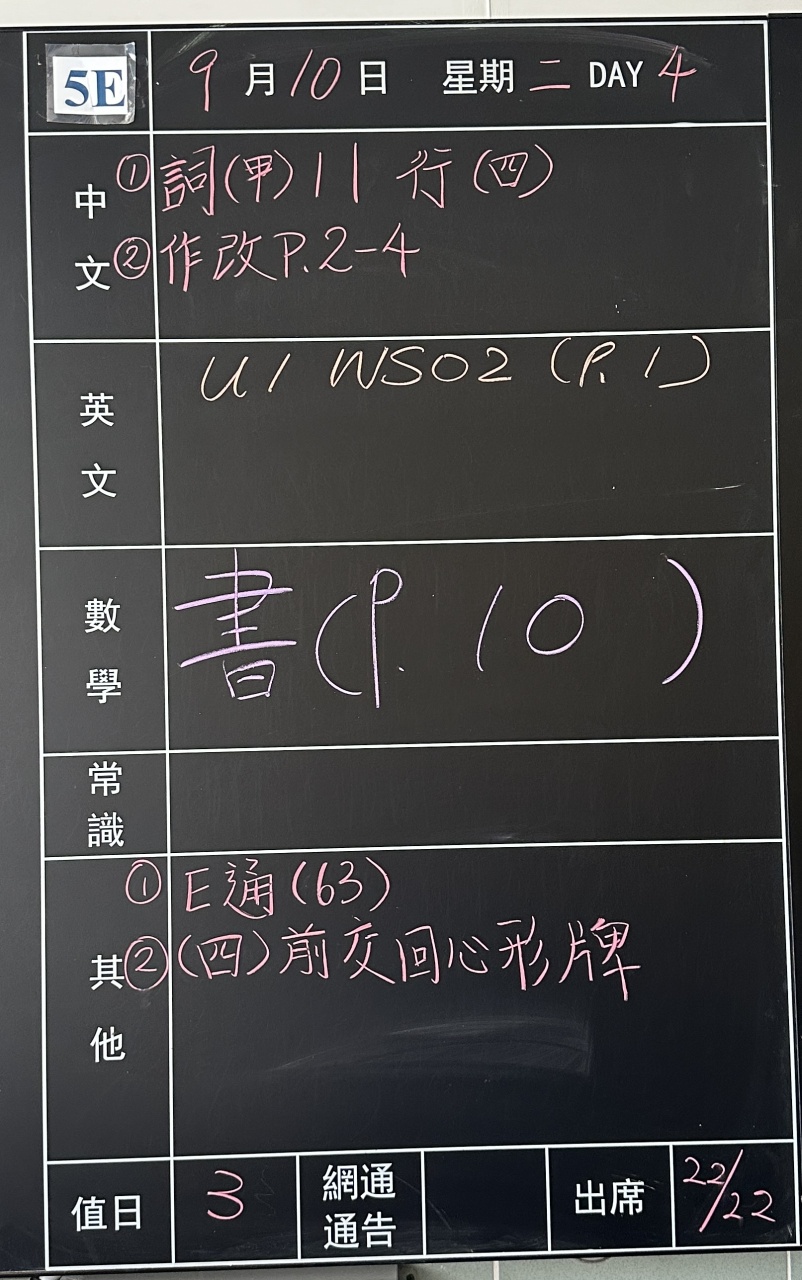 5E 9月10日 星期二 DAY 4
中文 ①詞(甲)11行(四)
②作改P.2-4
英文 U1 WS02 (P.1)
數學 書(P.10)
常識
其他 ①E通(63)
②(四)前交回心形牌
值日 3 網通通告 出席 22/22